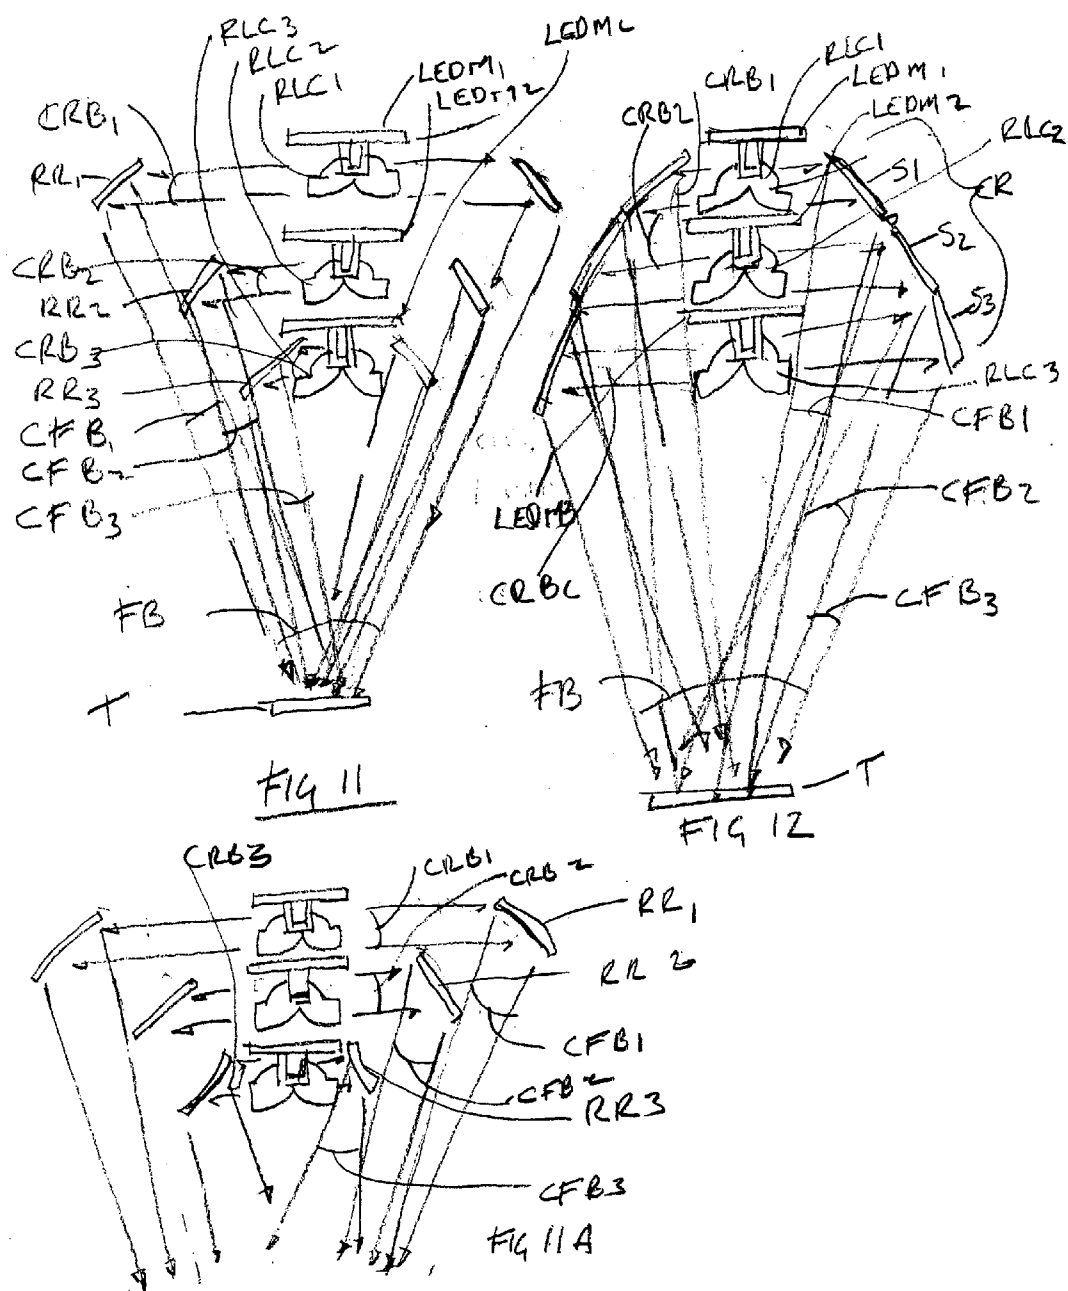 RLC3
RLC2
RLC1
LEDM1
LEDM2
CRB1
RR1
CRB2
RR2
CRB3
RR3
CFB1
CFB2
CFB3
FB
T
FIG 11
CRB2
CRB1
RLC1
LEDM1
LEDM2
RLC2
S1
CR
S2
S3
RLC3
CFB1
CFB2
CFB3
FB
T
FIG 12
CRB3
CRB1
CRB2
RR1
RR2
CFB1
CFB2
RR3
CFB3
FIG 11A